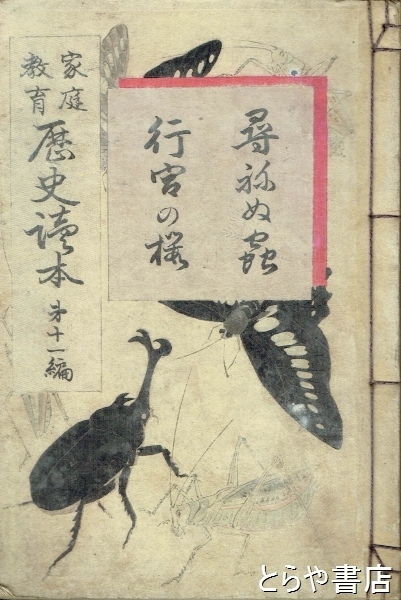 尋ねぬ蟲
行宮の櫻
家庭
教育
歴史讀本 第十一編
とらや書店